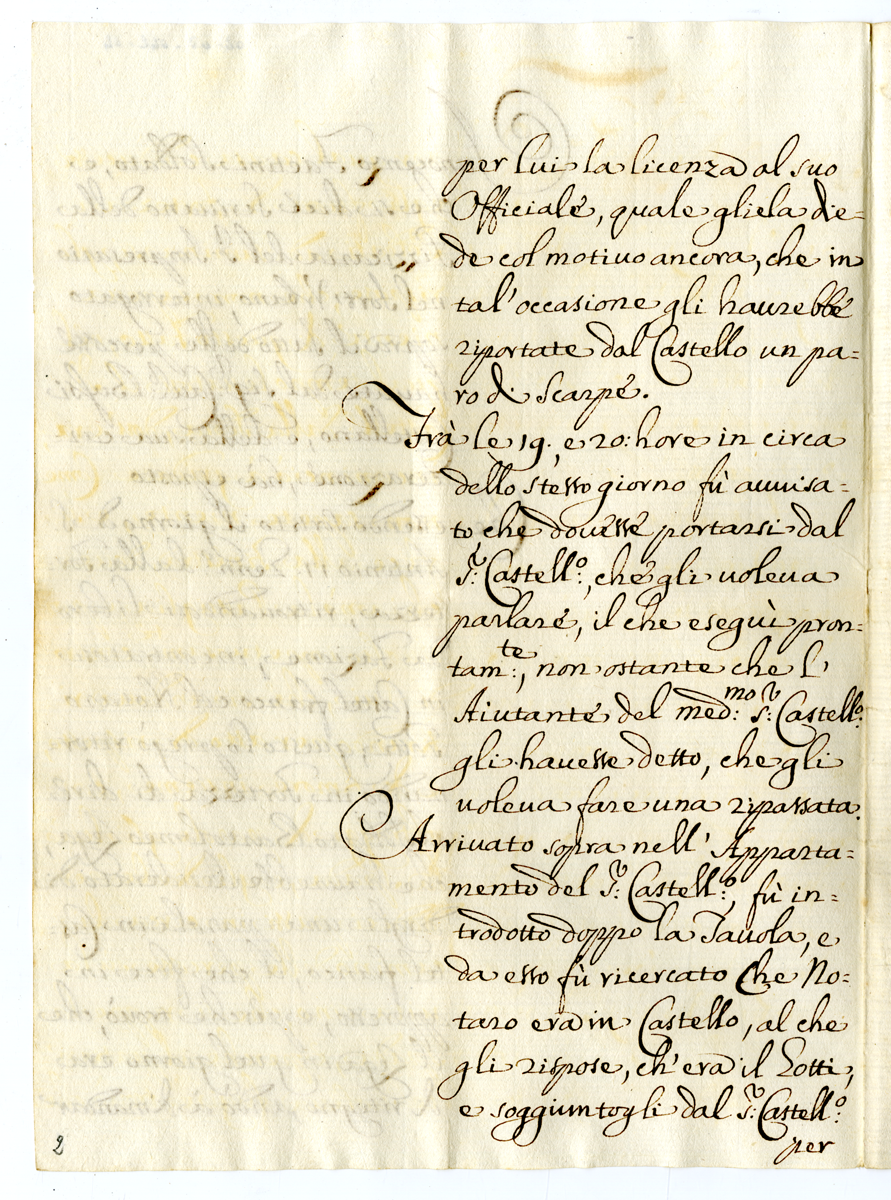 per lui la licenza al suo
Officiale, quale gliela die=
de col motiuo ancora, che in
tal' occasione gli haurebbe
riportate dal Castello un pa=
ro di Scarpe.
Trà le 19. e 20: hore in circa
dello stesso giorno fù auuisa=
to, che douesse portarsi dal
Sr: Castello:, che gli uoleua
parlare, il che eseguì pron=
tamte:, non ostante che l'
Aiutante del medmo: Sr: Castello:
gli hauesse detto, che gli
uoleua fare una ripassata.
Arriuato sopra nell' Apparta=
mento del Sr: Castello:, fù in=
trodotto doppo la Tauola, e
da esso fù ricercato Che No=
taro era in Castello, al che
gli rispose, ch'era il Lotti,
e soggiuntogli dal Sr: Castello:
per
2